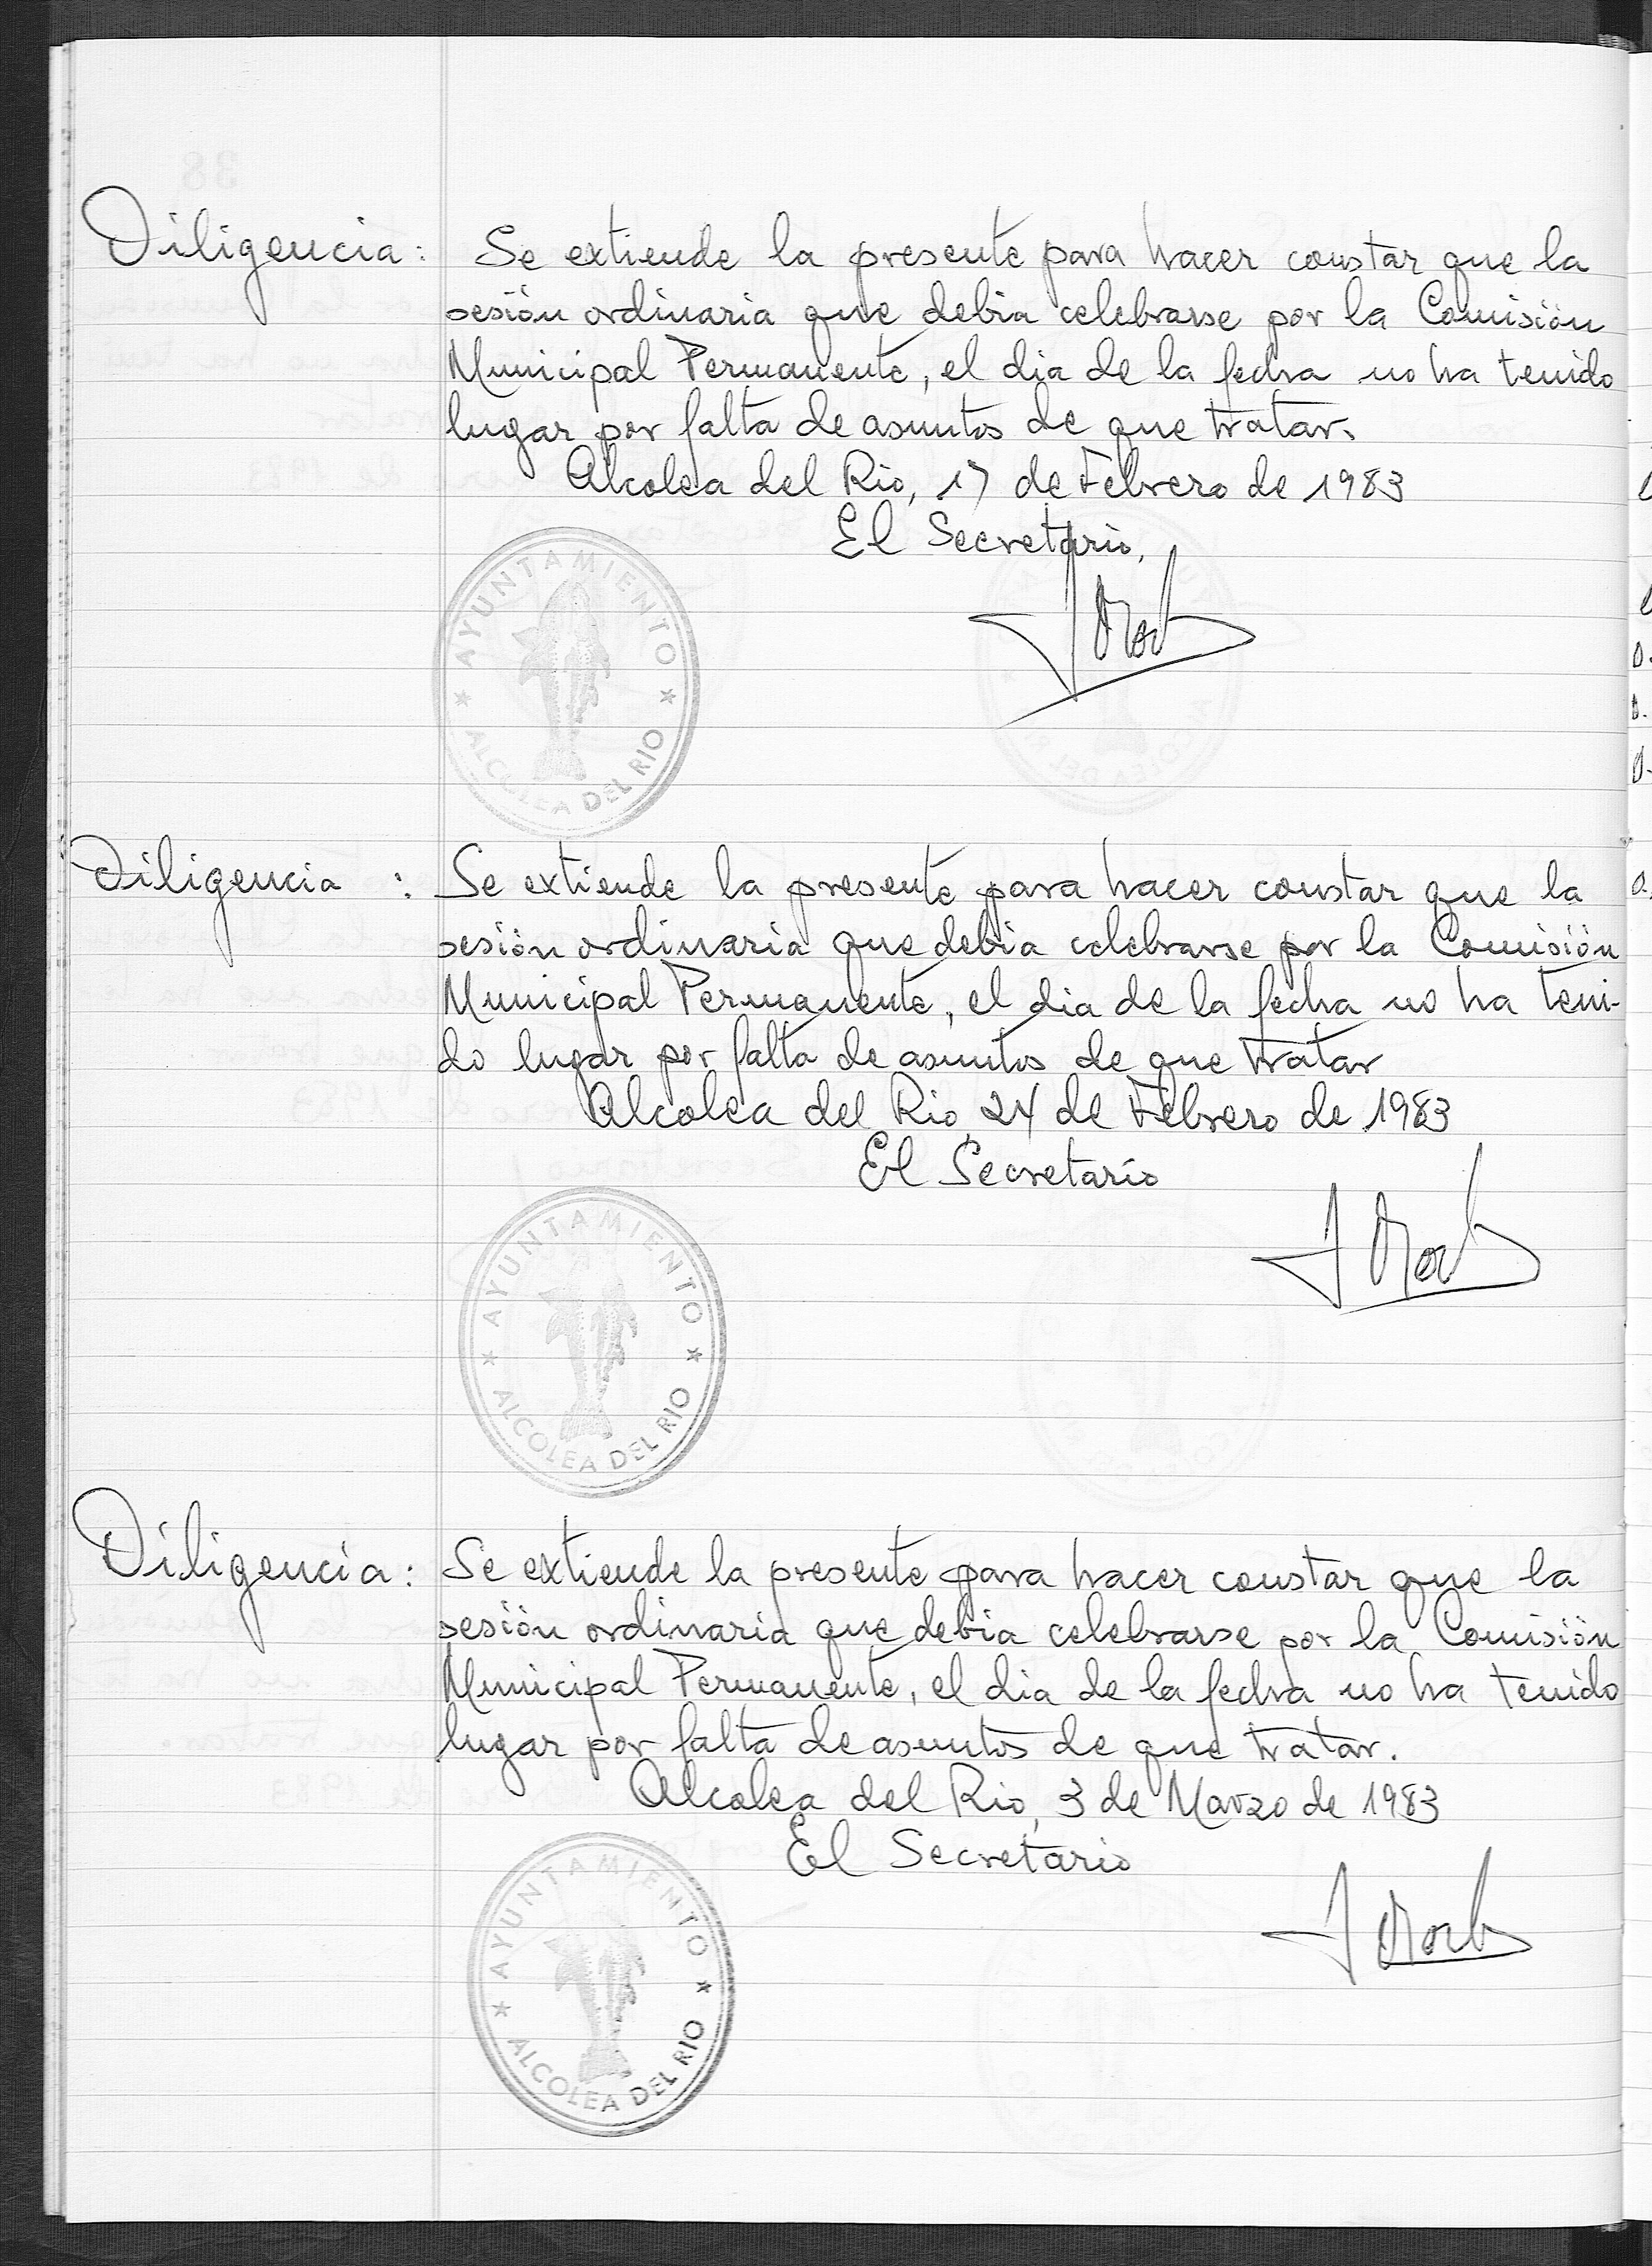 Diligencia: Se extiende la presente para hacer constar que la
sesión ordinaria que debia celebrarse por la Comisión
Municipal Permanente, el dia de la fecha no ha tenido
lugar por falta de asuntos de que tratar.
Alcolea del Rio, 17 de Febrero de 1983
El Secretario,
AYUNTAMIENTO
★ ★
ALCOLEA DEL RIO
Diligencia : Se extiende la presente para hacer constar que la
sesión ordinaria que debia celebrarse por la Comisión
Municipal Permanente, el dia de la fecha no ha teni-
do lugar por falta de asuntos de que tratar
Alcolea del Rio, 24 de Febrero de 1983
El Secretario
AYUNTAMIENTO
★ ★
ALCOLEA DEL RIO
Diligencia: Se extiende la presente para hacer constar que la
sesión ordinaria que debia celebrarse por la Comisión
Municipal Permanente, el dia de la fecha no ha tenido
lugar por falta de asuntos de que tratar.
Alcolea del Rio, 3 de Marzo de 1983
El Secretario
AYUNTAMIENTO
★ ★
ALCOLEA DEL RIO